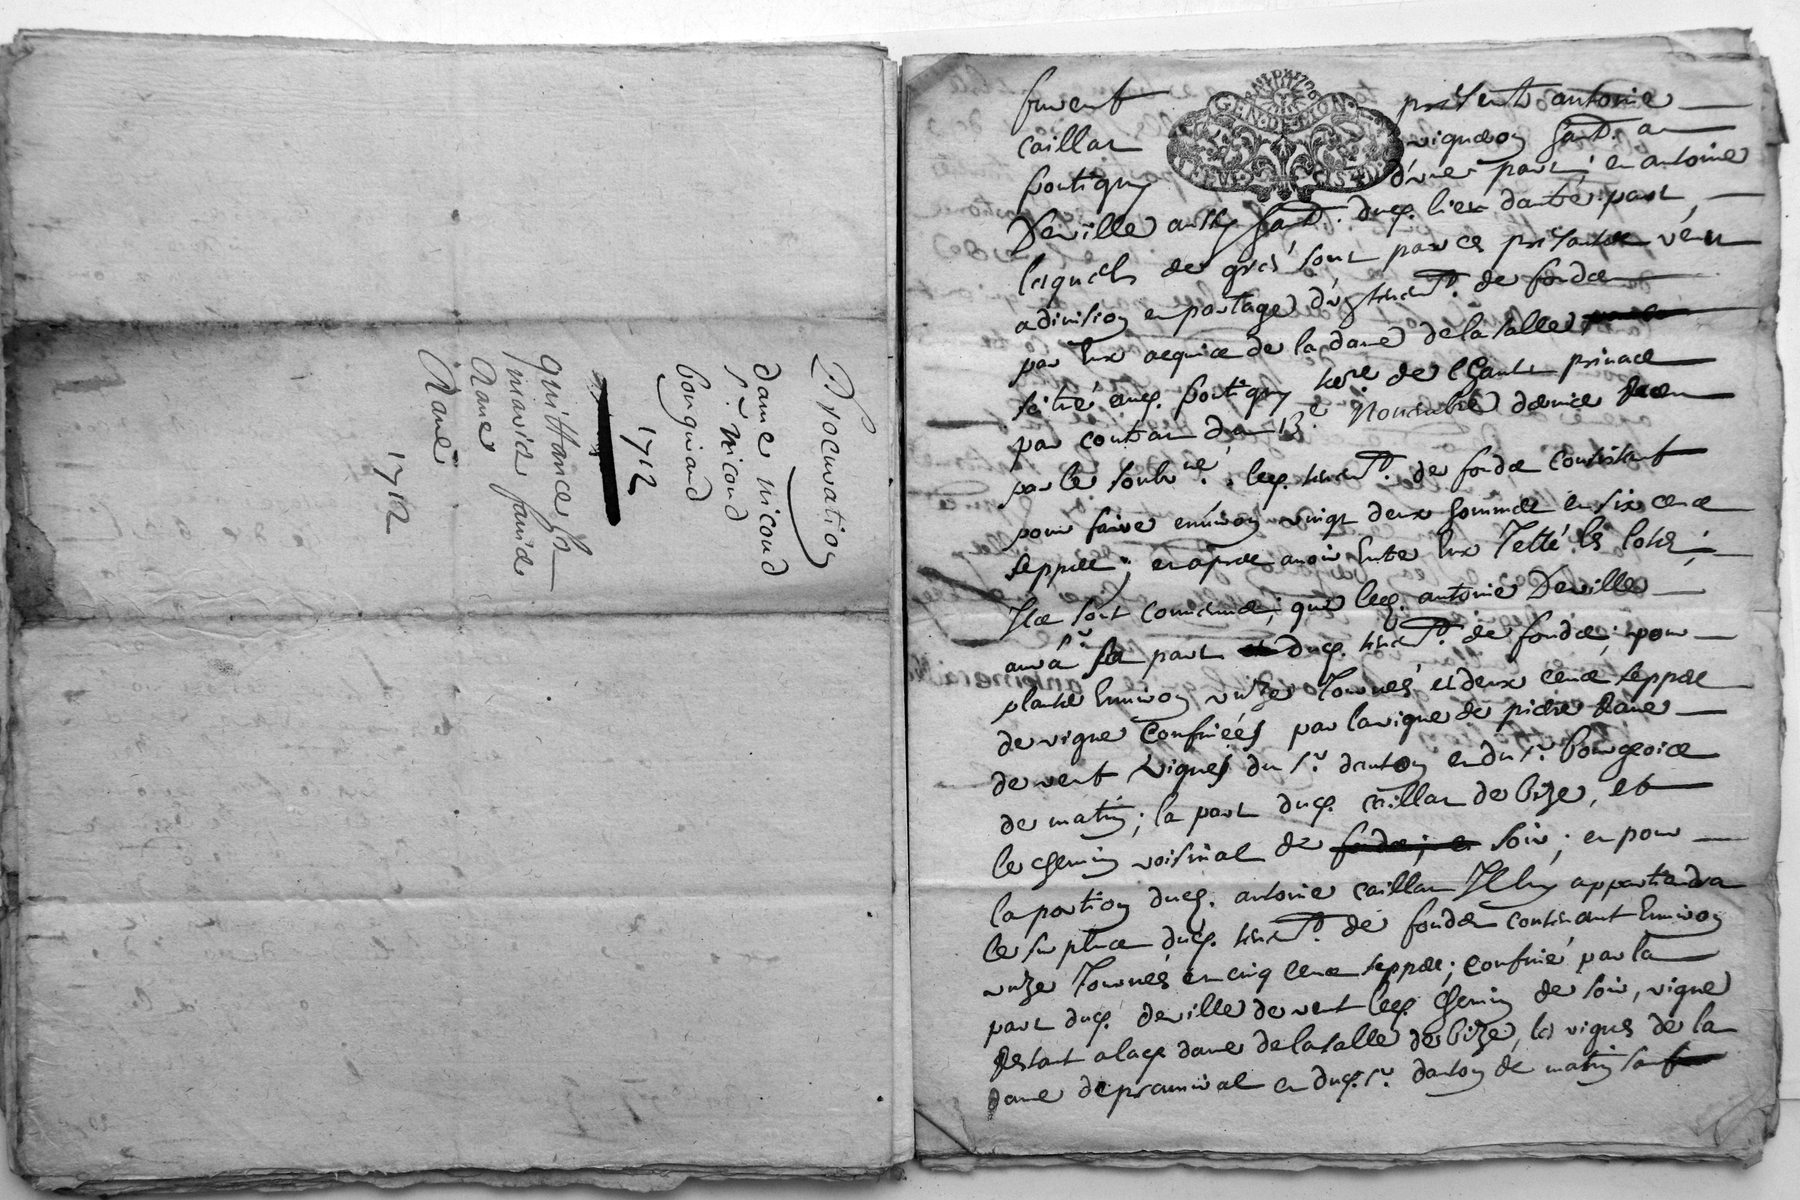 Procuration
dame nicoud
sr. nicoud
bonguiard
1712
quittance
marie favid
Rane
Rané
1712
furent presents antoine
caillar vigneron habt. a
fontigny d'une part; et antoine
Deville aussy habt. dud. lieu dautre part,
lesquels de gré sont par ces presantes venu
a division et partage d'un tenemt. de fonds
par eux acquis de la dame de la salle
situé aud. fontigny de
par contrat du 13e. Novembre dernier
par le soubne. led. tenemt. de fonds consistant
pour faire environ vingt deux hommés et six cens
seppes; et apres avoir entre eux Jetté les lots;
Ils sont convenus; que led. antoine Deville
aura sa part dud. tenemt. de fonds; pour
planter Environ unze Journés et deux cens seppes
de vigne Confinéés par la vigne de pierre Rane
de vent vignes du sr. danton et du sr. bourgeois
de matin; la part dud. caillar de bize, et
le chemin voisinal de soir; et pour
la portion dud. antoine caillar Il luy appartiendra
le surplus dud. tenemt. de fonds contenant Environ
unze Journés et cinq cens seppes; confiné par la
part dud. deville de vent led. chemin de soir, vigne
restant a lad. dame de la salle de bize, les vignes de la
dame de et dud. sr. danton de matin sauf
GEN. DE. LION.